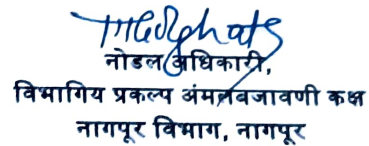 नोडल अधिकारी,
विभागिय प्रकल्प अंमलबजावणी कक्ष
नागपूर विभाग, नागपूर